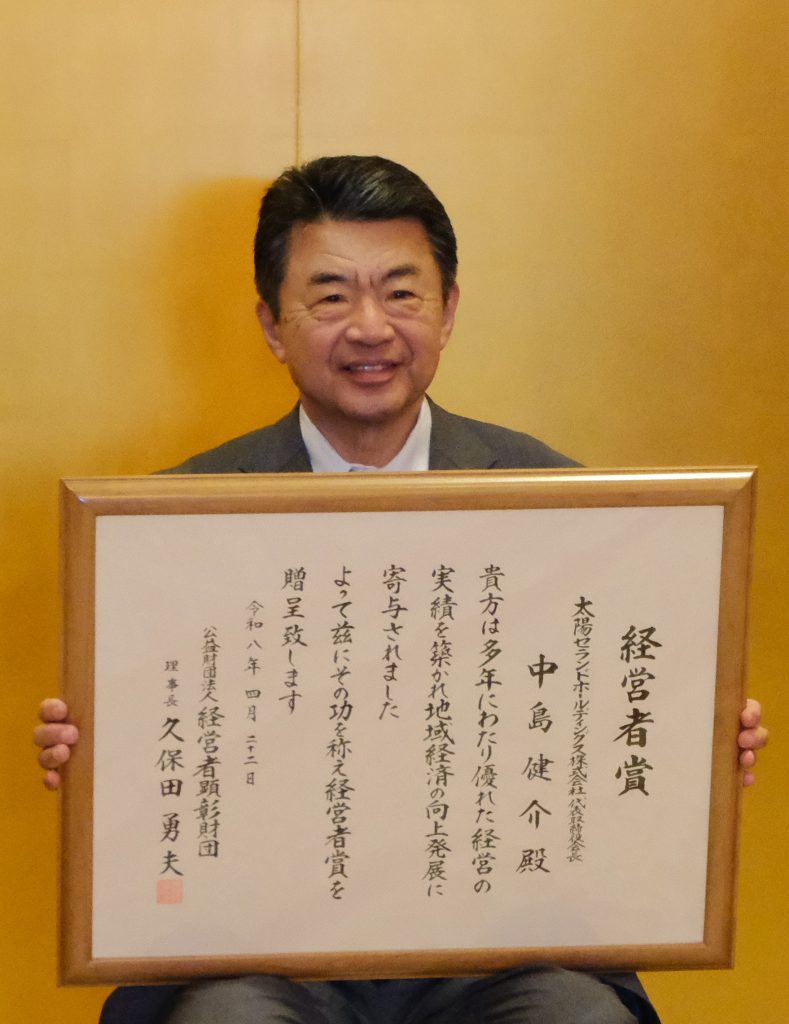 経営者賞
太陽セランドホールディングス株式会社 代表取締役会長
中島健介殿
貴方は多年にわたり優れた経営の
実績を築かれ地域経済の向上発展に
寄与されました
よって茲にその功を称え経営者賞を
贈呈致します
令和八年四月二十二日
公益財団法人 経営者顕彰財団
理事長 久保田勇夫